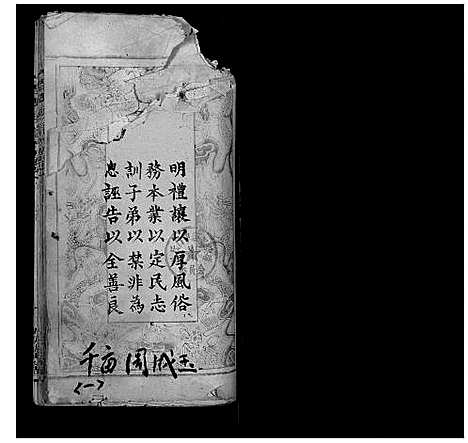 明禮讓以厚風俗
務本業以定民志
訓子弟以禁非為
息誣告以全善良
千亩 周成玉
(一)